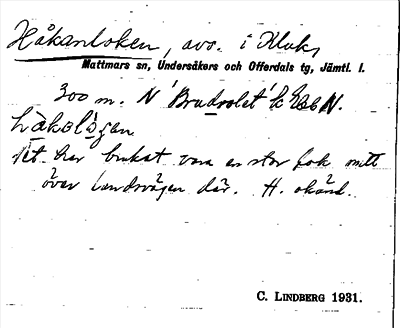 Håkanloken, avs. i Kluk,
Mattmars sn, Undersåkers och Offerdals tg, Jämtl. l.
300 m. N 'Brudvolet' k
håkolø̀gen
Det har brukat vara en stor lok mitt
över landsvägen där. H. okänd.
C. LINDBERG 1931.